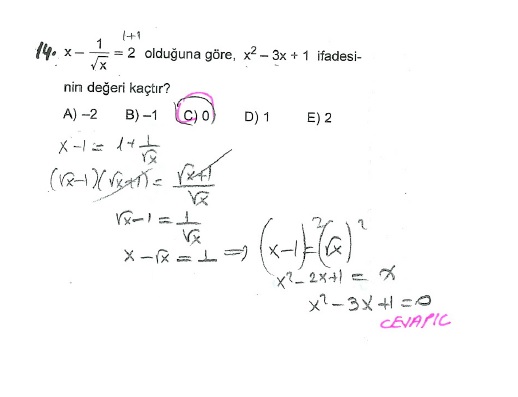 1+1
14. x − 1/√x = 2 olduğuna göre, x² − 3x + 1 ifadesi-
nin değeri kaçtır?
A) −2 B) −1 C) 0 D) 1 E) 2
x − 1 = 1 + 1/√x
(√x−1)(√x+1) = √x+1/√x
√x−1 = 1/√x
x − √x = 1 ⇒ (x−1)² = (√x)²
x² − 2x + 1 = x
x² − 3x + 1 = 0
CEVAP C